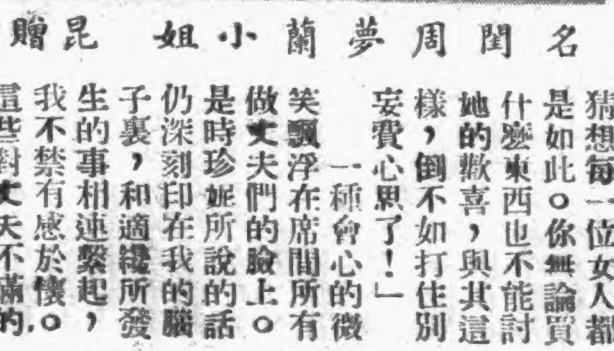 名閨周夢蘭小姐 昆贈
猜想每一位女人都
是如此。你無論買
什麼東西也不能討
她的歡喜，與其這
樣，倒不如打住別
妄費心思了！」
一種會心的微
笑飄浮在席間所有
做丈夫們的臉上。
是時珍妮所說的話
仍深刻印在我的腦
子裏，和適纔所發
生的事相連繫起，
我不禁有感於懷。
這些對丈夫不滿的，